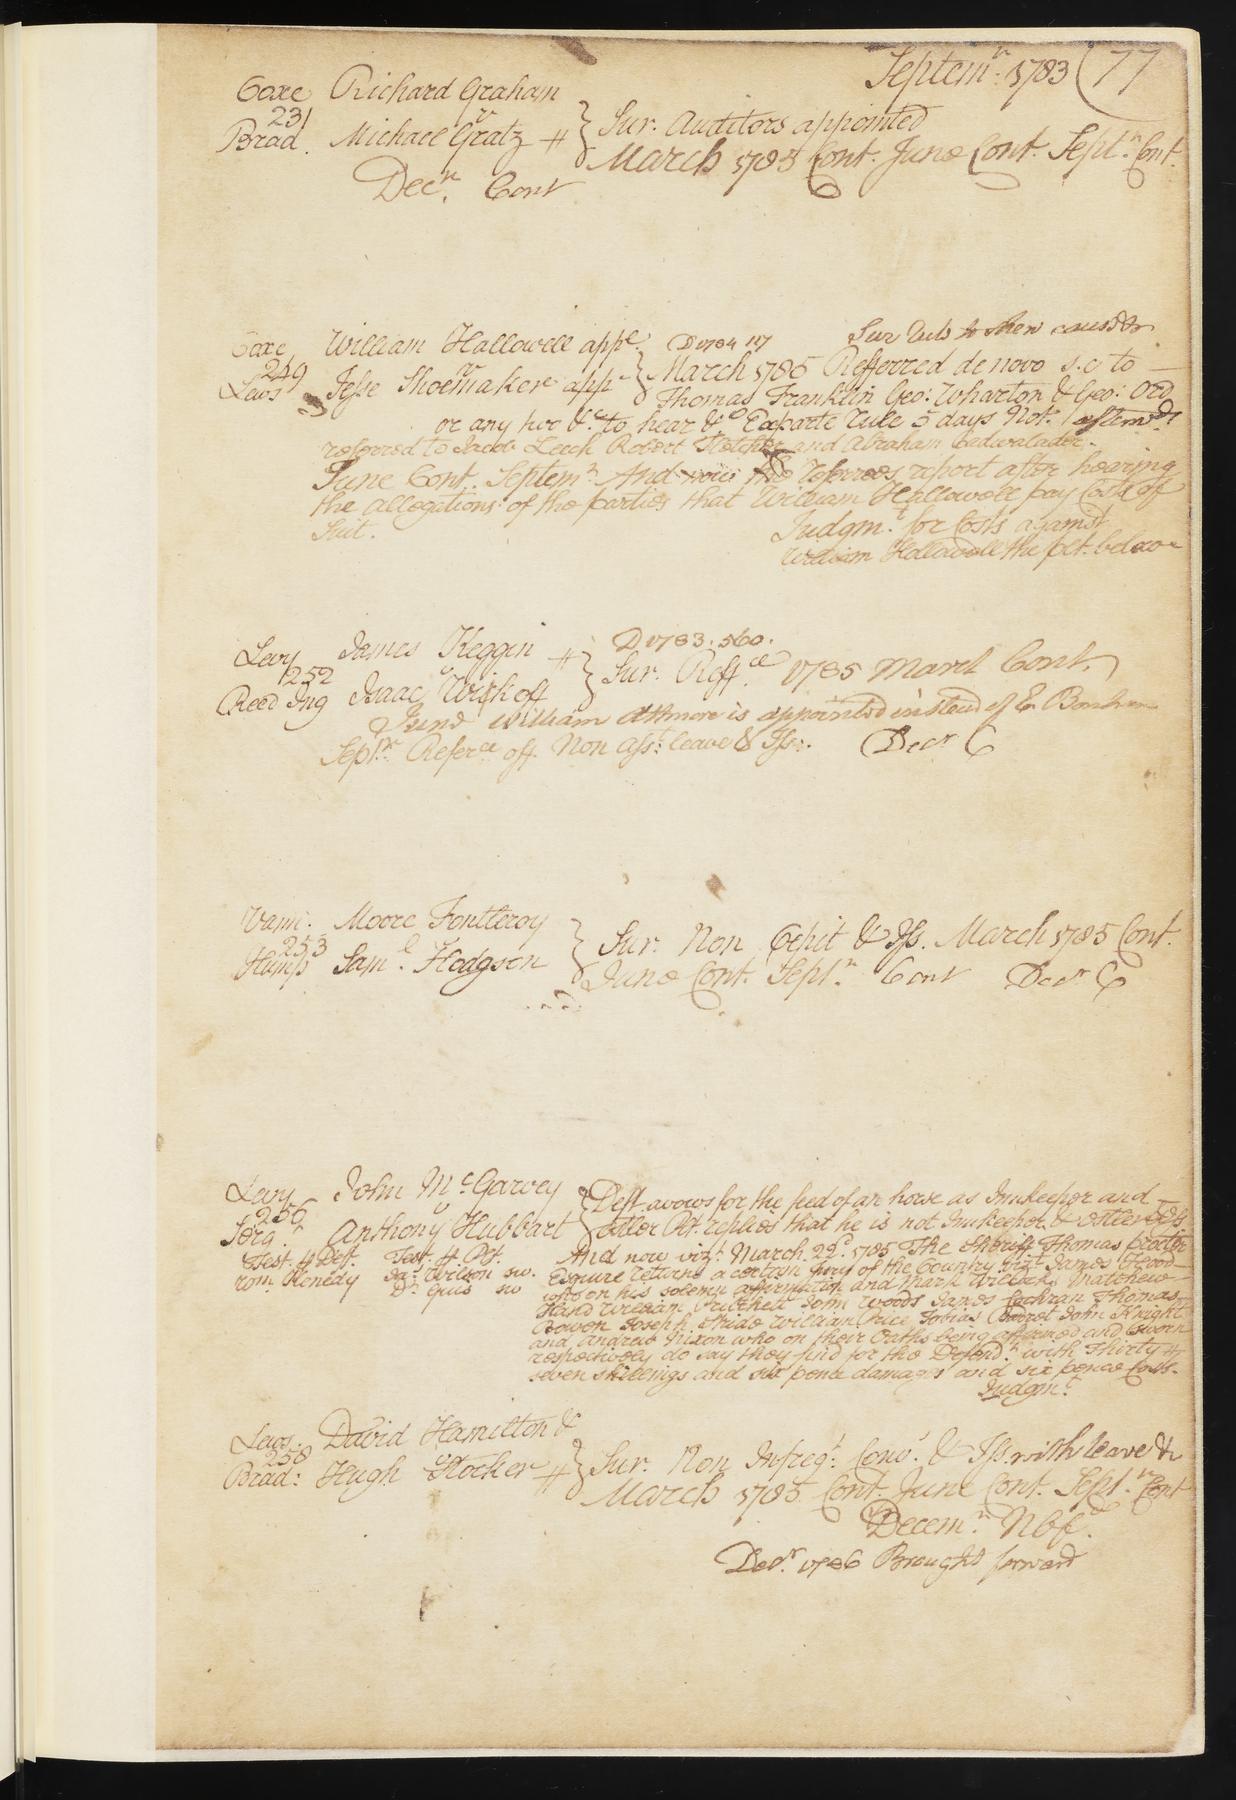 Septemr. 1783 (77
Coxe Richard Graham
231 v
Brad. Michael Gratz # } Sur. Auditors appointed
March 1785 Cont. June Cont. Septr. Cont.
Decr. Cont
Coxe William Hallowell appt. D 1784 117 Sur Rule to shew cause &c
249 v
Lews Jesse Shoemaker app } March 1785 Refferred de novo s.c to
Thomas Franklin Geo: Wharton & Geo: Ord
or any two &c. to hear &c Exparte rule 5 days Not.
referred to Jacob Leech Robert Fletcher and Abraham Cadwalader.
June Cont. Septemr. And now the referees report after hearing
the allegations of the parties that William Hallowell pay Costs of
Suit. Judgmt. for Costs against
William Hallowell the plt. below
Levy James Keggin # D 1783. 560.
252 v
Reed Ing Isaac Wikoff } Sur. Reffce. 1785 March Cont.
June William Attmore is appointed instead of
Septr. Referce off. Non Asst. leave & Iss. Decr C
Vann. Moore Fontleroy
253
Hump Saml. Hodgson } Sur. Non Cepit & Iss. March 1785 Cont.
June Cont. Septr. Cont Decr C
Levy John McGarvey } Deft. avows for the feed of an horse as Innkeeper and
256 v
Serg.t Anthony Hubbart ostler Plt. replies that he is not Innkeeper & ostler & Iss
Test. # Deft. Test. # Plt. And now vizt. March 22d. 1785 The Sheriff Thomas Procter
rom Kenedy Jas Wilson sw. Esquire returns a certain Jury of the Country vizt. James Flood
Do. quis sw who on his solemn affirmation and Mark Willcocks Matthew
Hand William Pritchett John Woods James Cochran Thomas
Bowen Joseph Stride William Price Tobias John Knight
and Andrew Nixon who on their Oaths being affirmed and Sworn
respectively do say they find for the Defendt. with Thirty #
seven shillings and six pence damages and six pence Costs.
Judgmt.
Lews. David Hamilton &c
258 v
Brad: Hugh Stocker # } Sur. Non Infregt. Convt. & Iss. with leave &c
March 1785 Cont. June Cont. Septr. Cont
Decemr. Nbfd.
Decr. 1786 Brought forward